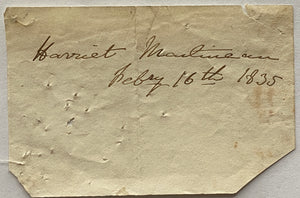 Harriet Martineau
Feby 16th 1835